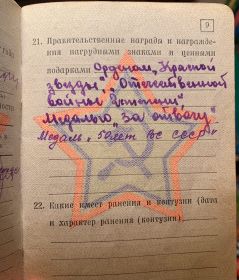 9
21. Правительственные награды и награжде-
ния нагрудными знаками и ценными
подарками Орденом „Красной
звезды" „Отечественной
войны"
Медалью „За отвагу"
Медаль „50 лет ВС СССР"
22. Какие имеет ранения и контузии (дата
и характер ранения (контузии)